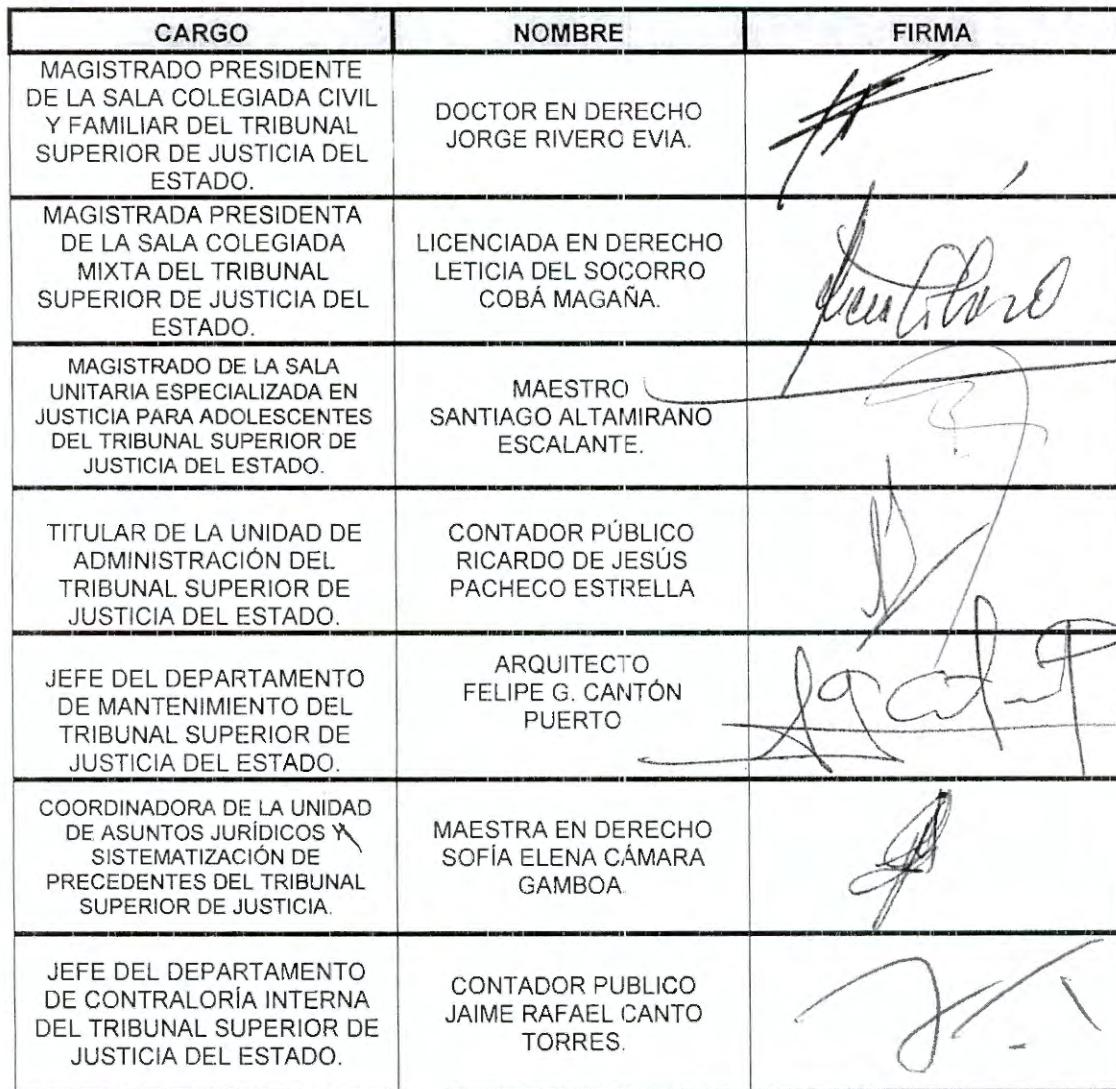 CARGO NOMBRE FIRMA
MAGISTRADO PRESIDENTE
DE LA SALA COLEGIADA CIVIL
Y FAMILIAR DEL TRIBUNAL
SUPERIOR DE JUSTICIA DEL
ESTADO.
DOCTOR EN DERECHO
JORGE RIVERO EVIA.
MAGISTRADA PRESIDENTA
DE LA SALA COLEGIADA
MIXTA DEL TRIBUNAL
SUPERIOR DE JUSTICIA DEL
ESTADO.
LICENCIADA EN DERECHO
LETICIA DEL SOCORRO
COBÁ MAGAÑA.
MAGISTRADO DE LA SALA
UNITARIA ESPECIALIZADA EN
JUSTICIA PARA ADOLESCENTES
DEL TRIBUNAL SUPERIOR DE
JUSTICIA DEL ESTADO.
MAESTRO
SANTIAGO ALTAMIRANO
ESCALANTE.
TITULAR DE LA UNIDAD DE
ADMINISTRACIÓN DEL
TRIBUNAL SUPERIOR DE
JUSTICIA DEL ESTADO.
CONTADOR PÚBLICO
RICARDO DE JESÚS
PACHECO ESTRELLA
JEFE DEL DEPARTAMENTO
DE MANTENIMIENTO DEL
TRIBUNAL SUPERIOR DE
JUSTICIA DEL ESTADO.
ARQUITECTO
FELIPE G. CANTÓN
PUERTO
COORDINADORA DE LA UNIDAD
DE ASUNTOS JURÍDICOS Y
SISTEMATIZACIÓN DE
PRECEDENTES DEL TRIBUNAL
SUPERIOR DE JUSTICIA.
MAESTRA EN DERECHO
SOFÍA ELENA CÁMARA
GAMBOA
JEFE DEL DEPARTAMENTO
DE CONTRALORÍA INTERNA
DEL TRIBUNAL SUPERIOR DE
JUSTICIA DEL ESTADO.
CONTADOR PUBLICO
JAIME RAFAEL CANTO
TORRES.